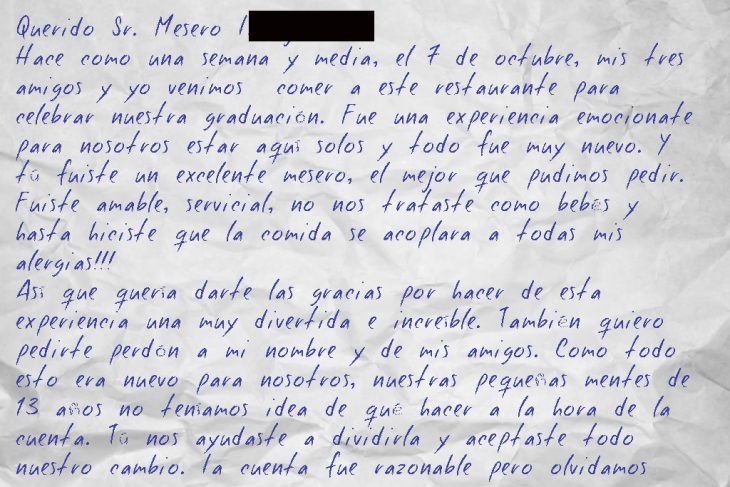 Querido Sr. Mesero
Hace como una semana y media, el 7 de octubre, mis tres
amigos y yo venimos comer a este restaurante para
celebrar nuestra graduación. Fue una experiencia emocionate
para nosotros estar aquí solos y todo fue muy nuevo. Y
tú fuiste un excelente mesero, el mejor que pudimos pedir.
Fuiste amable, servicial, no nos trataste como bebés y
hasta hiciste que la comida se acoplara a todas mis
alergias!!!
Así que quería darte las gracias por hacer de esta
experiencia una muy divertida e increíble. También quiero
pedirte perdón a mi nombre y de mis amigos. Como todo
esto era nuevo para nosotros, nuestras pequeñas mentes de
13 años no teníamos idea de qué hacer a la hora de la
cuenta. Tú nos ayudaste a dividirla y aceptaste todo
nuestro cambio. la cuenta fue razonable pero olvidamos